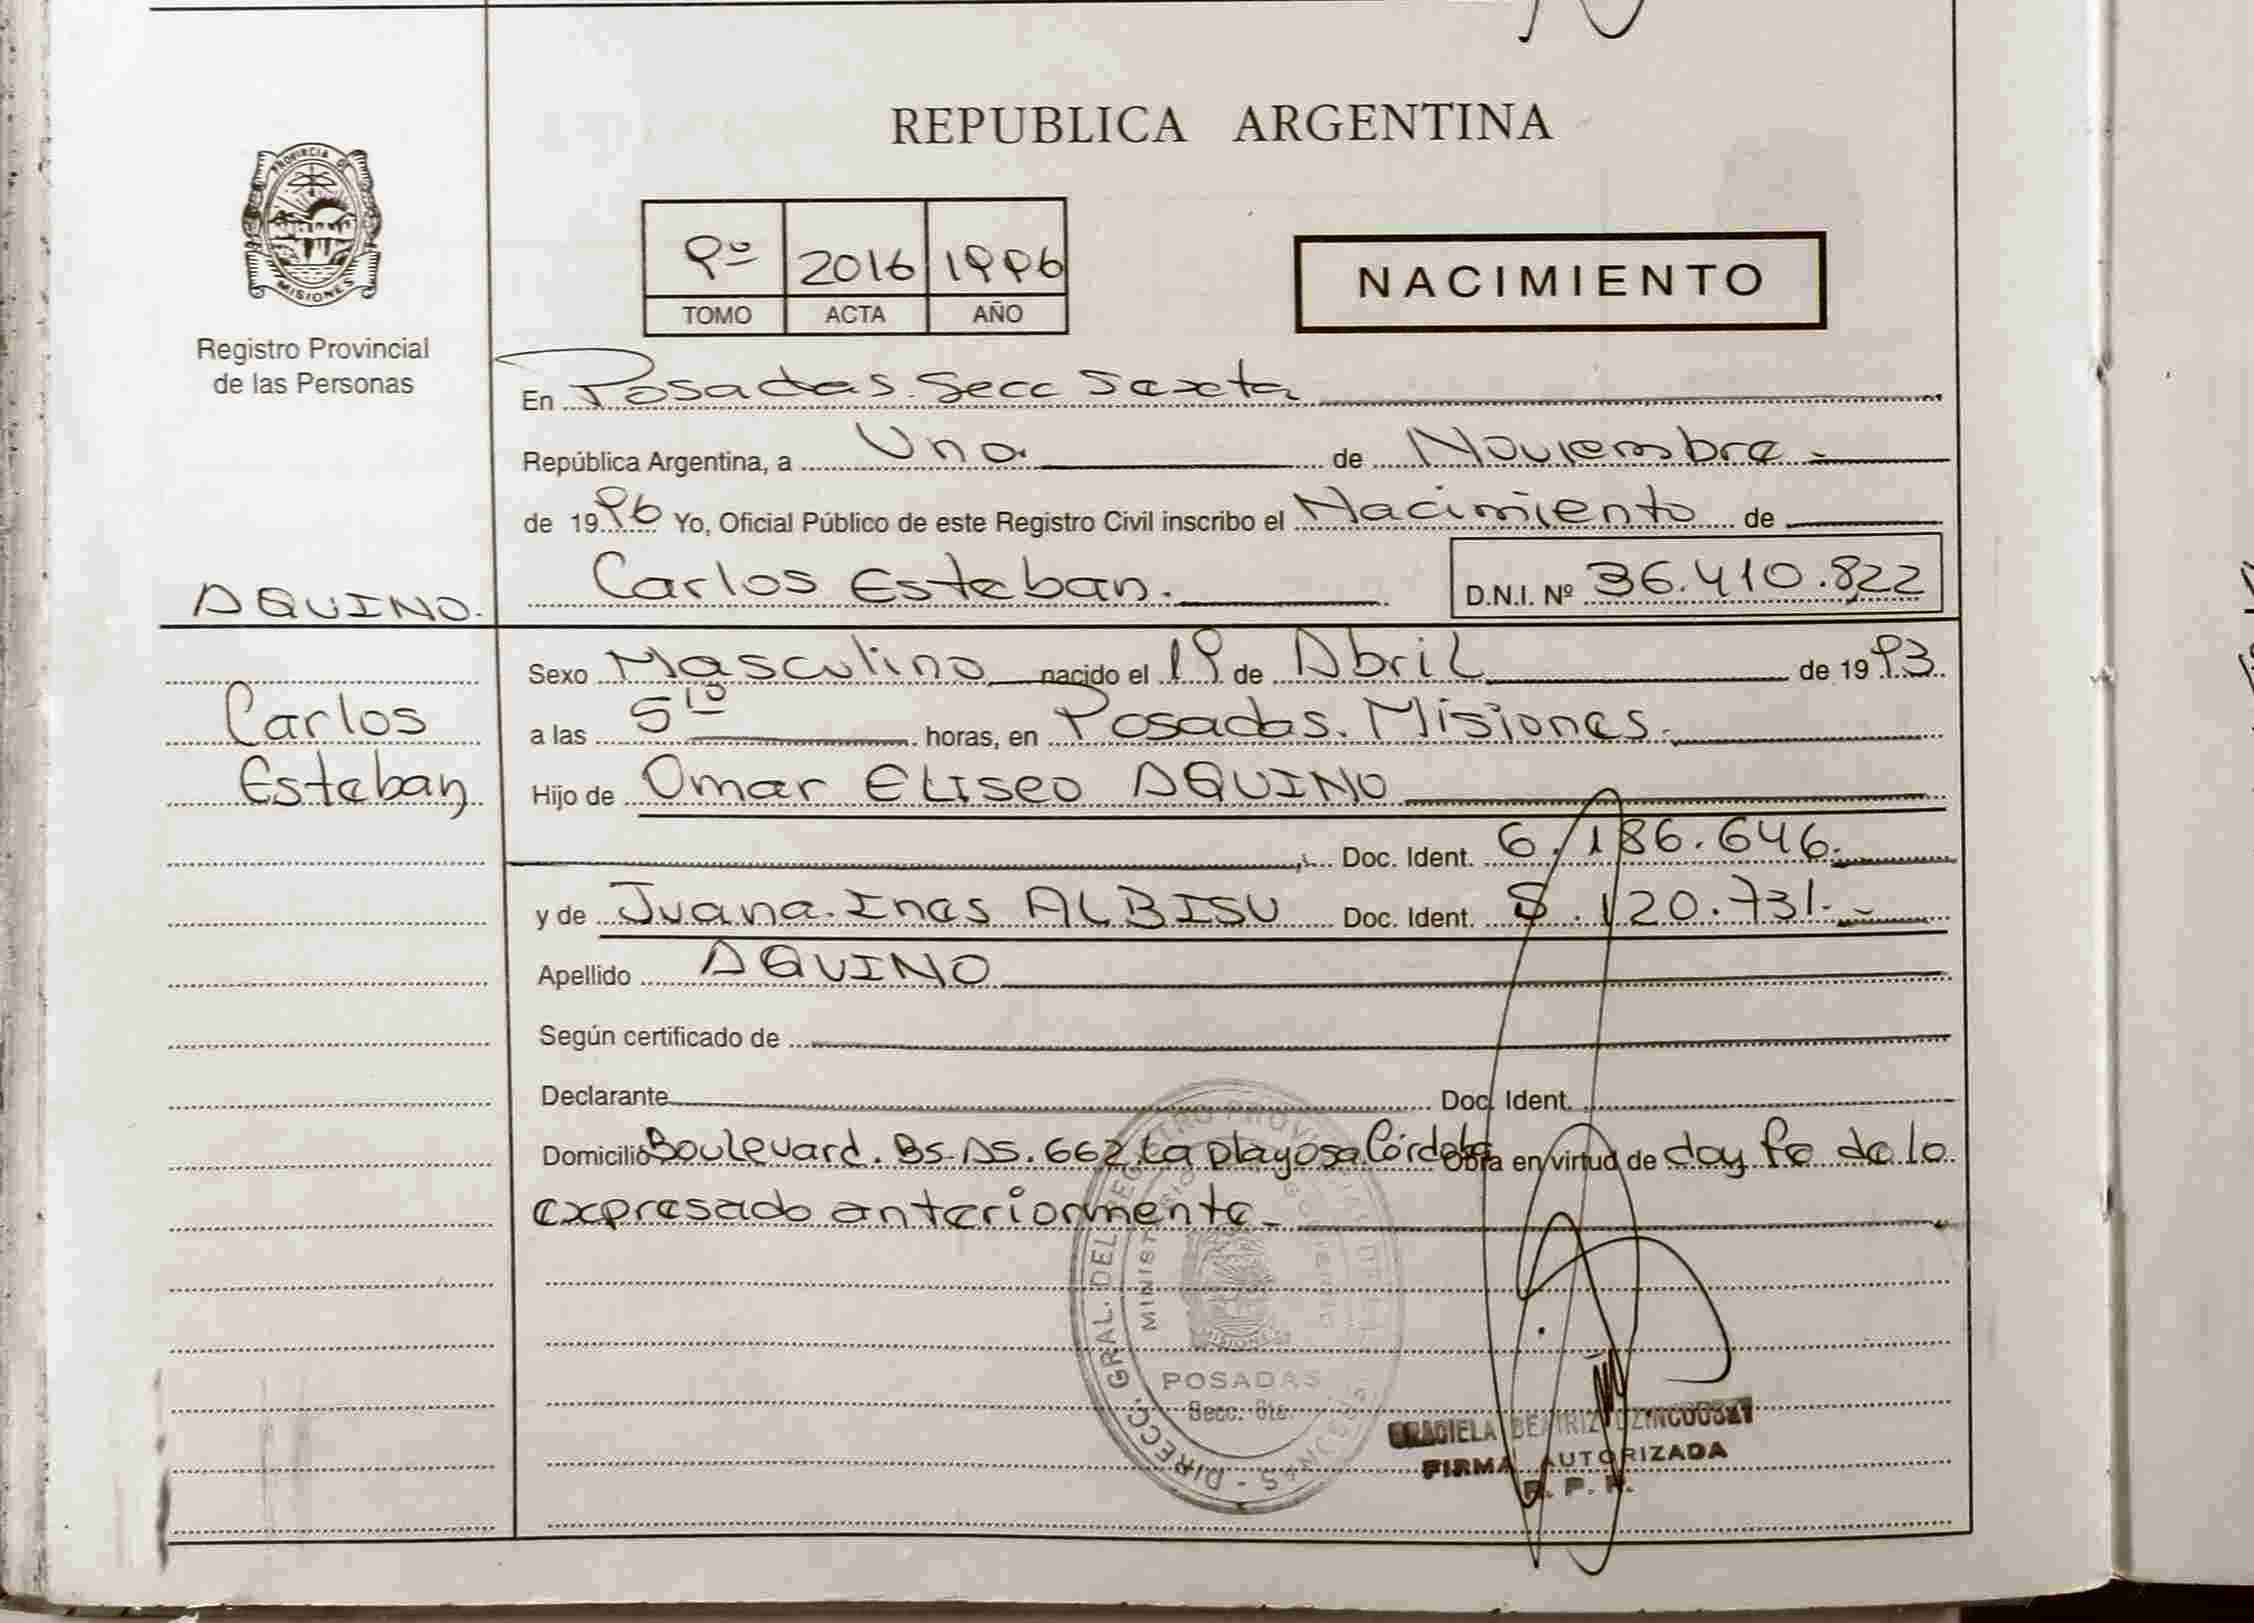 REPUBLICA ARGENTINA
PROVINCIA DE
MISIONES
Registro Provincial
de las Personas
9º 2016 1996
TOMO ACTA AÑO
NACIMIENTO
En Posadas. Secc Sexta
República Argentina, a Uno de Noviembre.-
de 1996 Yo, Oficial Público de este Registro Civil inscribo el Nacimiento de
Carlos Esteban. D.N.I. Nº 36.410.822
AQUINO.
Carlos
Esteban
Sexo Masculino nacido el 19 de Abril de 1993
a las 5 10 horas, en Posadas. Misiones.
Hijo de Omar Eliseo AQUINO
Doc. Ident. 6.186.646.
y de Juana. Ines ALBISU Doc. Ident. 5.120.731.-
Apellido AQUINO
Según certificado de
Declarante Doc. Ident.
Domicilio Boulevard. Bs. As. 662. La Playosa. Córdoba Obra en virtud de doy fe de lo
expresado anteriormente-
DIRECC. GRAL. DEL REGISTRO PROVINCIAL DE LAS PERSONAS
POSADAS
Secc. 6ta.
GRACIELA BEATRIZ
FIRMA AUTORIZADA
R. P. P.